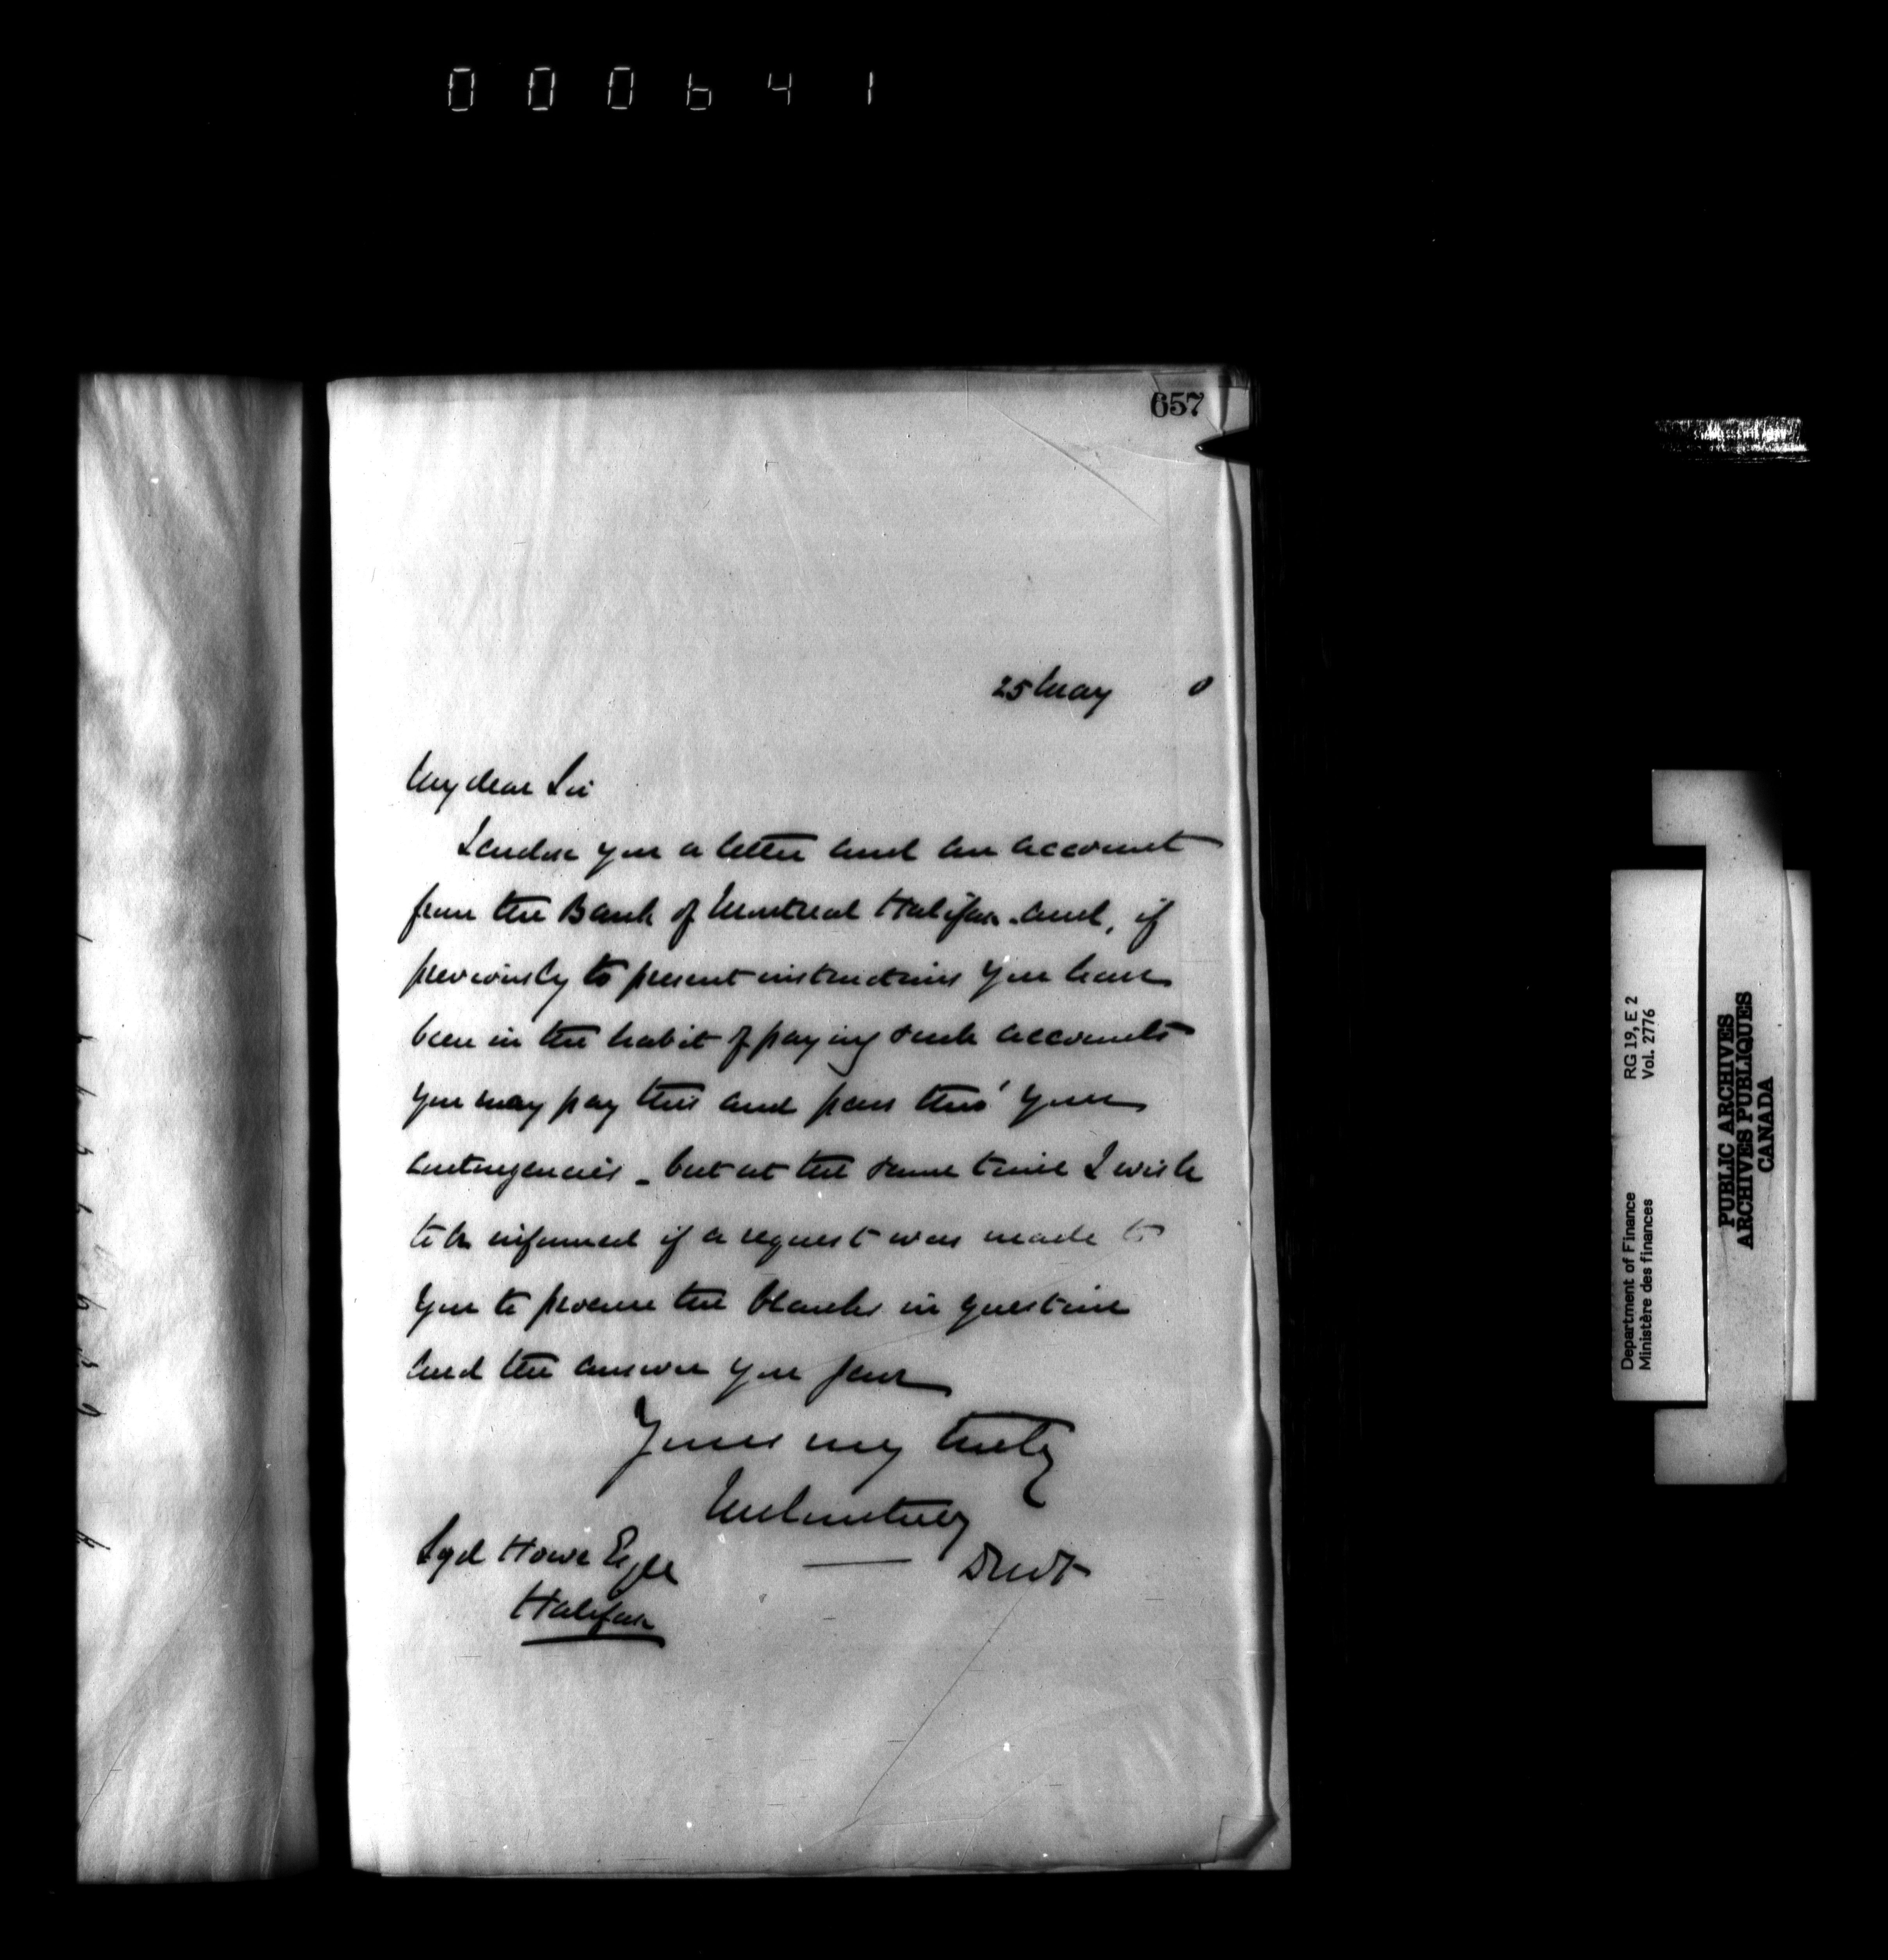 000641
657
25 May 0
My dear Sir
I enclose you a letter and an account
from the Bank of Montreal Halifax and, if
previously to present instructions you have
been in the habit of paying such accounts
you may pay this and pass thro' your
contingencies _ but at the same time I wish
to be informed if a request was made to
you to procure the blanks in question
and the answer you gave
Yours very truly
DRWDT
Syd Howe Esqre
Halifax
Department of Finance RG 19, E 2
Ministère des finances Vol. 2776
PUBLIC ARCHIVES
ARCHIVES PUBLIQUES
CANADA